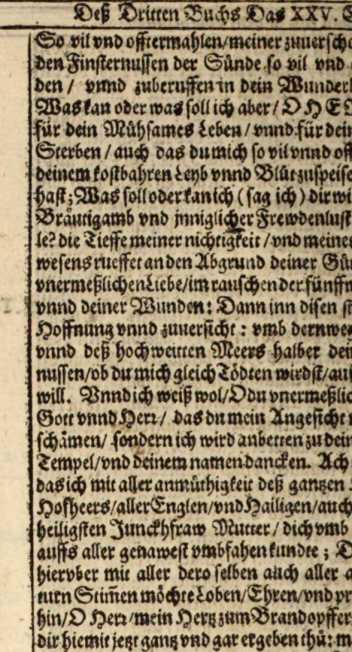 Deß Dritten Buchs Das XXV.
So vil vnd offtermahlen/meiner zuuersche
den Finsternussen der Sünde so vil vnd
den / vnnd zuberuffen in dein Wunder
Was kan oder was soll ich aber / O HE
für dein Mühsames Leben / vnnd für dein
Sterben / auch das du mich so vil vnnd off
deinem kostbahren Leyb vnnd Blüt zuspeise
hast; Was soll oder kan ich (sag ich) dir wi
Bräutigamb vnd jnniglicher Frewdenlust
le? die Tieffe meiner nichtigkeit / vnd meines
wesens rueffet an den Abgrund deiner Gü
vnermeßlichen Liebe/im rauschen der fünff
vnnd deiner Wunden: Dann inn disen st
Hoffnung vnnd zuuersicht : vmb dernwe
vnnd deß hochweitten Meers halber dei
nussen/ob du mich gleich Tödten wirdst/au
will. Vnnd ich weiß wol/O du vnermeßlic
Gott vnnd Herr/ das du mein Angesicht
schämen/ sondern ich wird anbetten zu dein
Tempel/vnd deinem namen dancken. Ach
das ich mit aller anmüthigkeit deß gantzen
Hofheers/aller Englen/vnd Hailigen/auch
heiligsten Junckhfraw Mutter / dich vmb
auffs aller genawest vmbfahen kundte ;
hiervber mit aller dero selben auch aller a
turn Stimen möchte Loben/Ehren/vnd pr
hin/O Herr/mein Hertz zum Brandopffer
dir hiemit jetzt gantz vnd gar ergeben thü: m